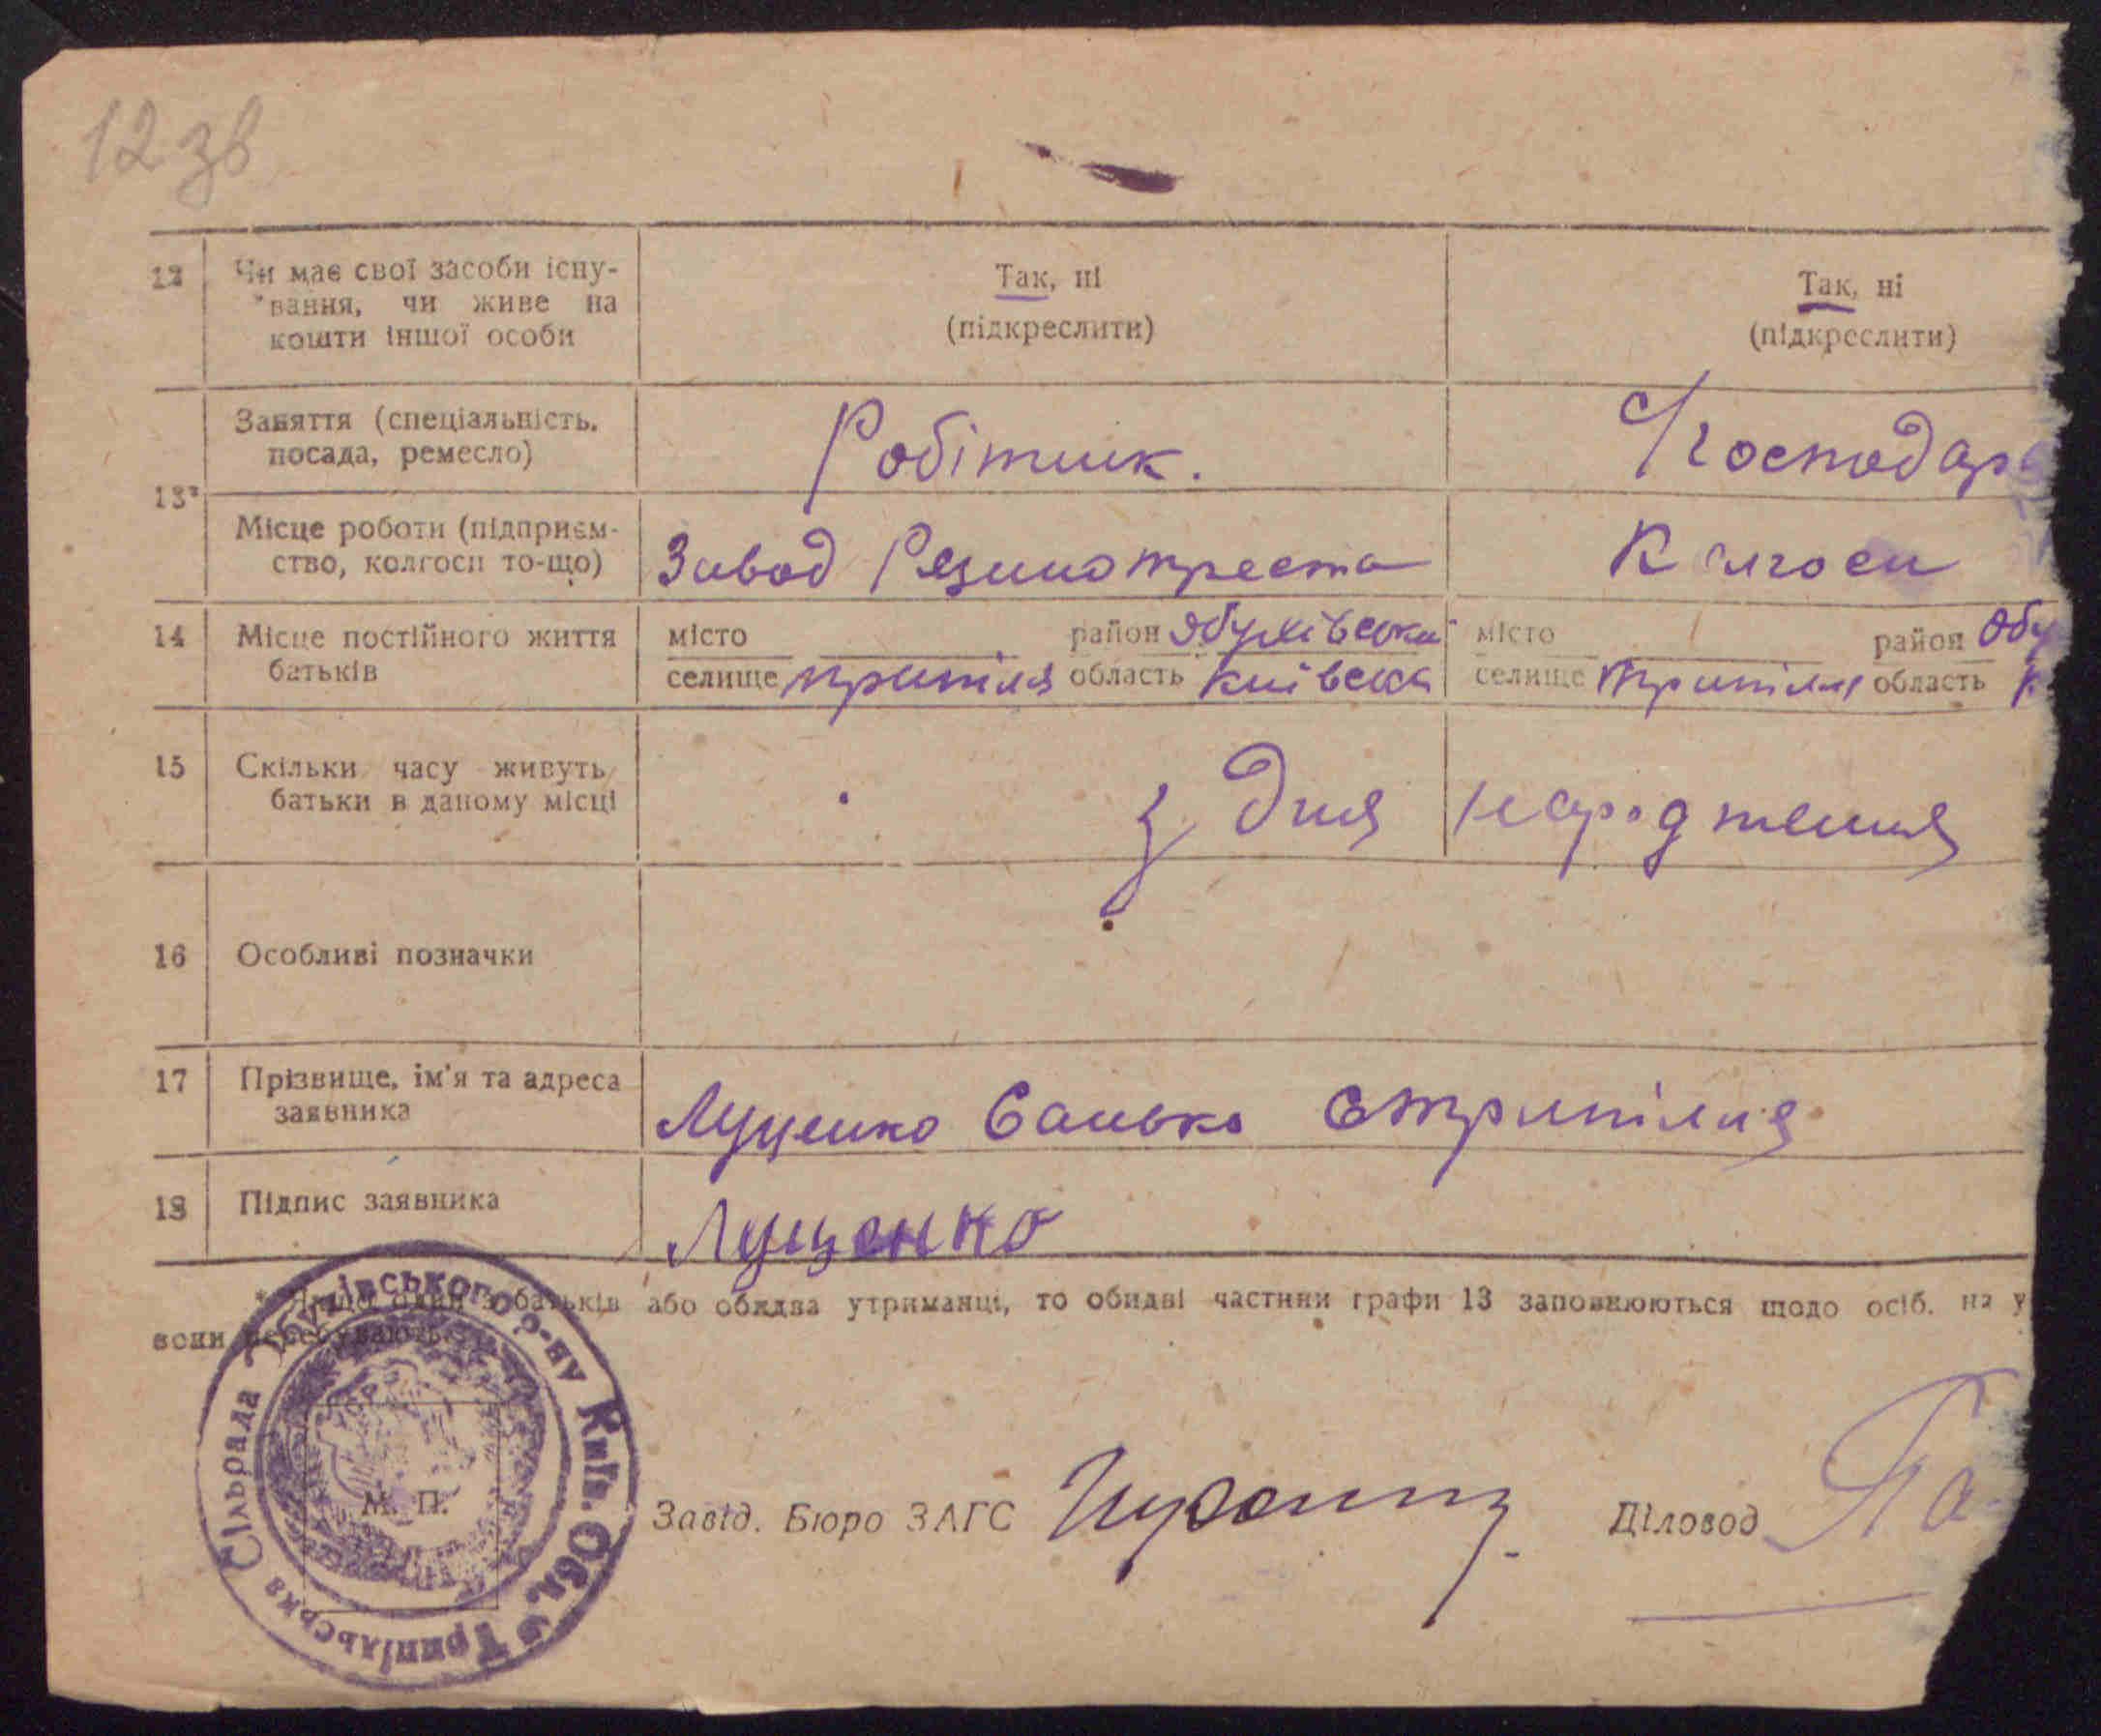 12 зв
12 Чи має свої засоби існу-
вання, чи живе на
кошти іншої особи
Так, ні
(підкреслити)
Так, ні
(підкреслити)
13*
Заняття (спеціальність,
посада, ремесло)
Робітник.
Господар
Місце роботи (підприєм-
ство, колгосп то-що)
Завод Резинотреста
Колгосп
14 Місце постійного життя
батьків
місто район Обухівськи
селище Трипілля область Київська
місто район Обу
селище Трипілля область К
15 Скільки часу живуть
батьки в даному місці
з дня народження
16 Особливі позначки
17 Прізвище, ім'я та адреса
заявника
Луценко Санько с Трипілля
18 Підпис заявника
Луценко
* Якщо один з батьків або обидва утриманці, то обидві частини графи 13 заповнюються щодо осіб, на у
вони перебувають.
Трипільська Сільрада Обухівського р-ну Київ. Обл.
М. П.
Завід. Бюро ЗАГС
Діловод Па